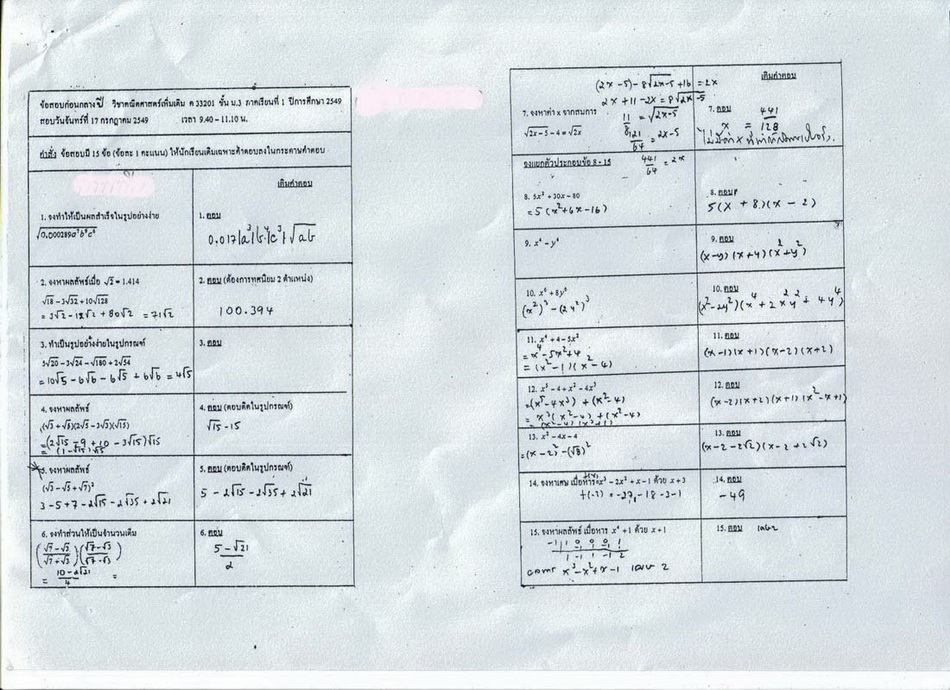 ข้อสอบก่อนกลางปี วิชาคณิตศาสตร์เพิ่มเติม ค 33201 ชั้น ม.3 ภาคเรียนที่ 1 ปีการศึกษา 2549
สอบวันจันทร์ที่ 17 กรกฎาคม 2549 เวลา 9.40 – 11.10 น.
คำสั่ง ข้อสอบมี 15 ข้อ (ข้อละ 1 คะแนน) ให้นักเรียนเติมเฉพาะคำตอบลงในกระดาษคำตอบ
เติมคำตอบ
1. จงทำให้เป็นผลสำเร็จในรูปอย่างง่าย
√0.000289a⁷b⁹c⁶
1. ตอบ
0.017|a³|b⁴|c³|√ab
2. จงหาผลลัพธ์เมื่อ √2 = 1.414
√18 – 3√32 + 10√128
= 3√2 - 12√2 + 80√2 = 71√2
2. ตอบ (ต้องการทศนิยม 2 ตำแหน่ง)
100.394
3. ทำเป็นรูปอย่างง่ายในรูปกรณฑ์
5√20 – 3√24 – √180 + 2√54
= 10√5 - 6√6 - 6√5 + 6√6 = 4√5
3. ตอบ
4. จงหาผลลัพธ์
(√3 + √5)(2√5 – 3√3)(√15)
= (2√15 - 9 + 10 - 3√15)√15
= (1 - √15)√15
4. ตอบ (ตอบติดในรูปกรณฑ์)
√15 - 15
5. จงหาผลลัพธ์
(√3 – √5 + √7)²
3 - 5 + 7 - 2√15 - 2√35 + 2√21
5. ตอบ (ตอบติดในรูปกรณฑ์)
5 - 2√15 - 2√35 + 2√21
6. จงทำส่วนให้เป็นจำนวนเต็ม
((√7 – √3)/(√7 + √3)) ((√7 - √3)/(√7 - √3))
= (10 - 2√21)/4 =
6. ตอบ
(5 - √21)/2
(2x - 5) - 8√2x-5 + 16 = 2x
2x + 11 - 2x = 8√2x-5
เติมคำตอบ
7. จงหาค่า x จากสมการ
√2x – 5 – 4 = √2x
11/8 = √2x-5
121/64 = 2x-5
441/64 = 2x
7. ตอบ
x = 441/128
จงแยกตัวประกอบข้อ 8 - 15
8. 5x² + 30x – 80
= 5(x² + 6x - 16)
8. ตอบ
5(x + 8)(x - 2)
9. x⁴ – y⁴
9. ตอบ
(x-y)(x+y)(x²+y²)
10. x⁶ + 8y⁶
(x²)³ - (2y²)³
10. ตอบ
(x²-2y²)(x⁴ + 2x²y² + 4y⁴)
11. x⁴ + 4 – 5x²
= x⁴ - 5x² + 4
= (x² - 1)(x² - 4)
11. ตอบ
(x-1)(x+1)(x-2)(x+2)
12. x⁵ – 4 + x² – 4x³
= (x⁵ - 4x³) + (x² - 4)
= x³(x² - 4) + (x² - 4)
= (x²-4)(x³+1)
12. ตอบ
(x-2)(x+2)(x+1)(x²-x+1)
13. x² – 4x – 4
= (x - 2)² - (√8)²
13. ตอบ
(x - 2 - 2√2)(x - 2 + 2√2)
14. จงหาเศษ เมื่อหาร x³ – 2x² + x – 1 ด้วย x + 3
f(-3) = -27, -18 -3 -1
14. ตอบ
-49
15. จงหาผลลัพธ์ เมื่อหาร x⁴ + 1 ด้วย x + 1
-1 | 1 0 0 0 1
1 -1 1 -1 2
x³ - x² + x - 1 เศษ 2
15. ตอบ เศษ 2